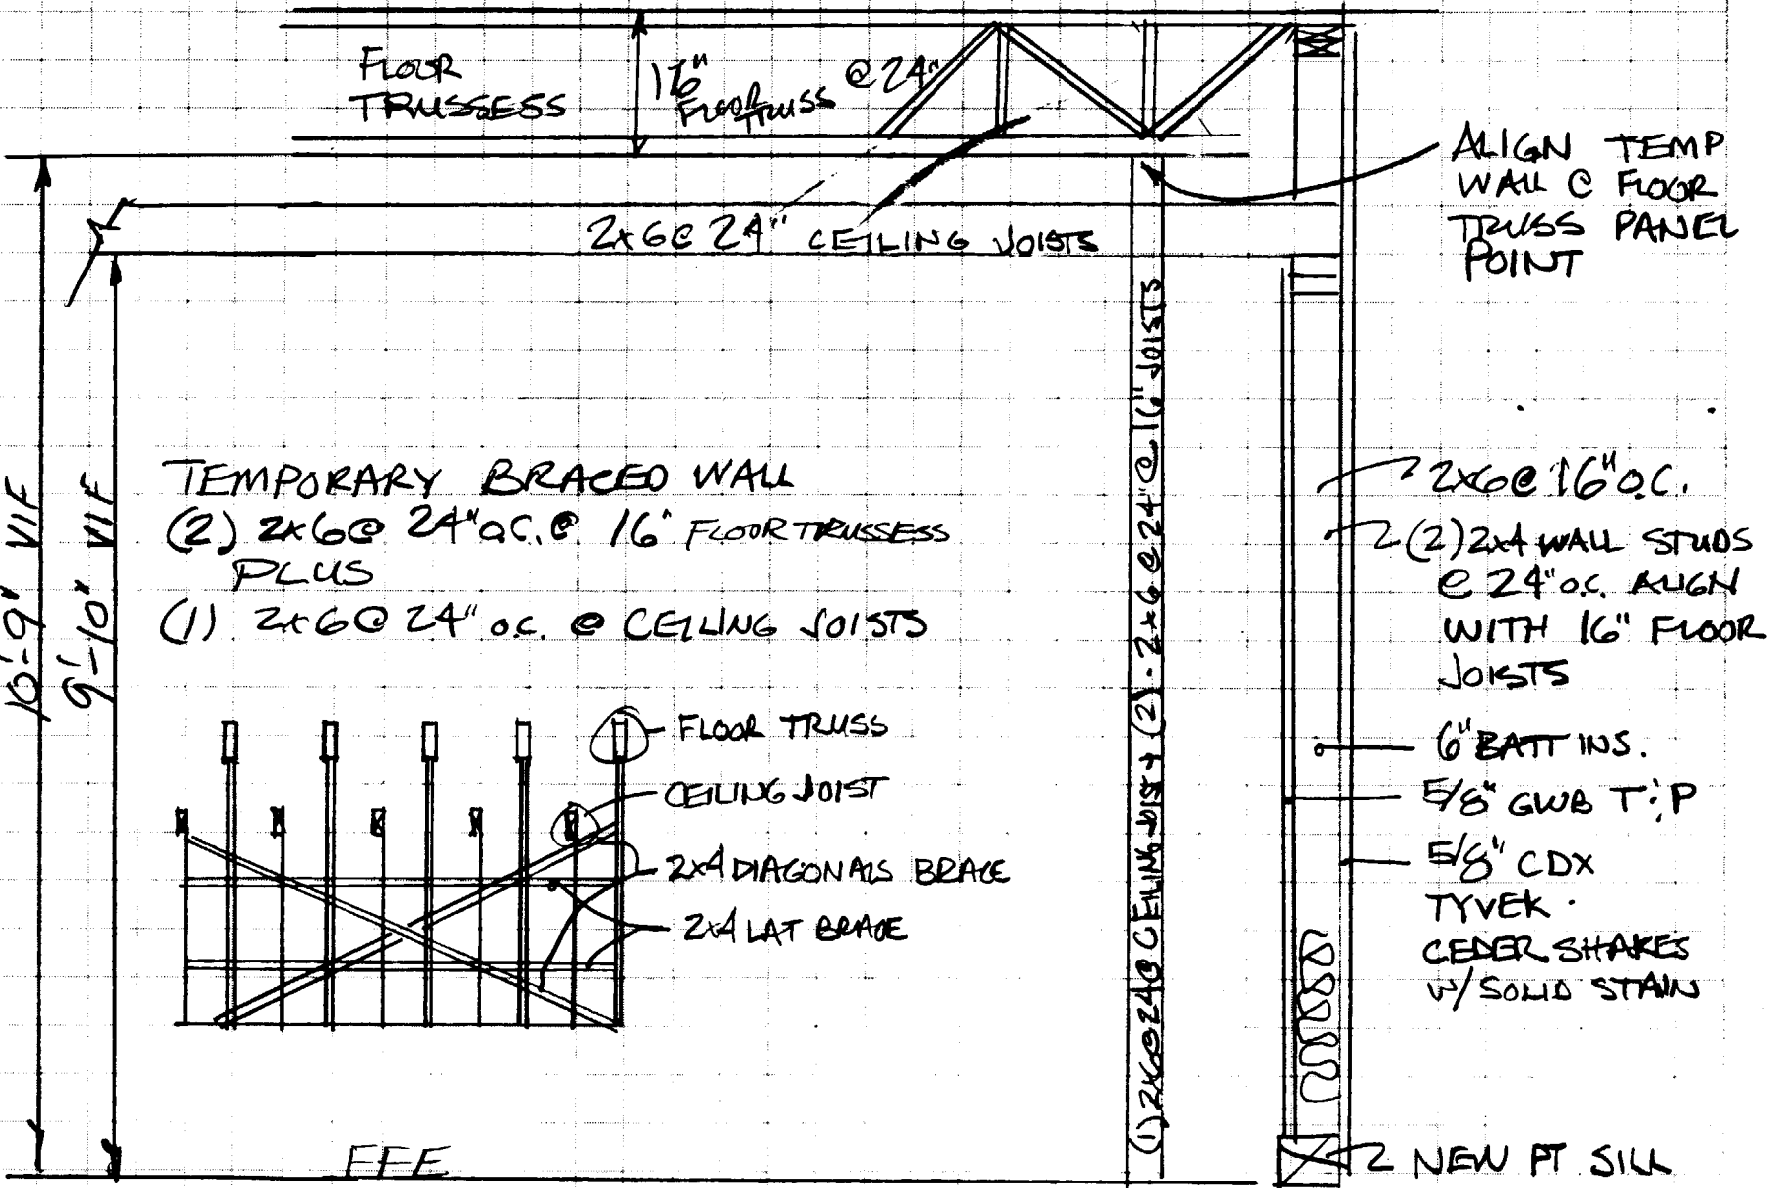 FLOOR
TRUSSESS
16"
FLOOR
TRUSS
@ 24"
ALIGN TEMP
WALL @ FLOOR
TRUSS PANEL
POINT
2x6@ 24" CEILING JOISTS
10'-9" VIF
9'-10" VIF
TEMPORARY BRACED WALL
(2) 2x6@ 24" O.C. @ 16" FLOOR TRUSSESS
PLUS
(1) 2x6@ 24" o.c. @ CEILING JOISTS
FLOOR TRUSS
CEILING JOIST
2x4 DIAGONALS BRACE
2x4 LAT BRACE
(1) 2x6@24@ CEILING JOIST + (2) - 2x6 @ 24" @ 16" JOISTS
2x6@ 16" O.C.
(2) 2x4 WALL STUDS
@ 24" o.c. ALIGN
WITH 16" FLOOR
JOISTS
6" BATT INS.
5/8" GWB T:P
5/8" CDX
TYVEK.
CEDER SHAKES
W/ SOLID STAIN
FFE
NEW PT SILL